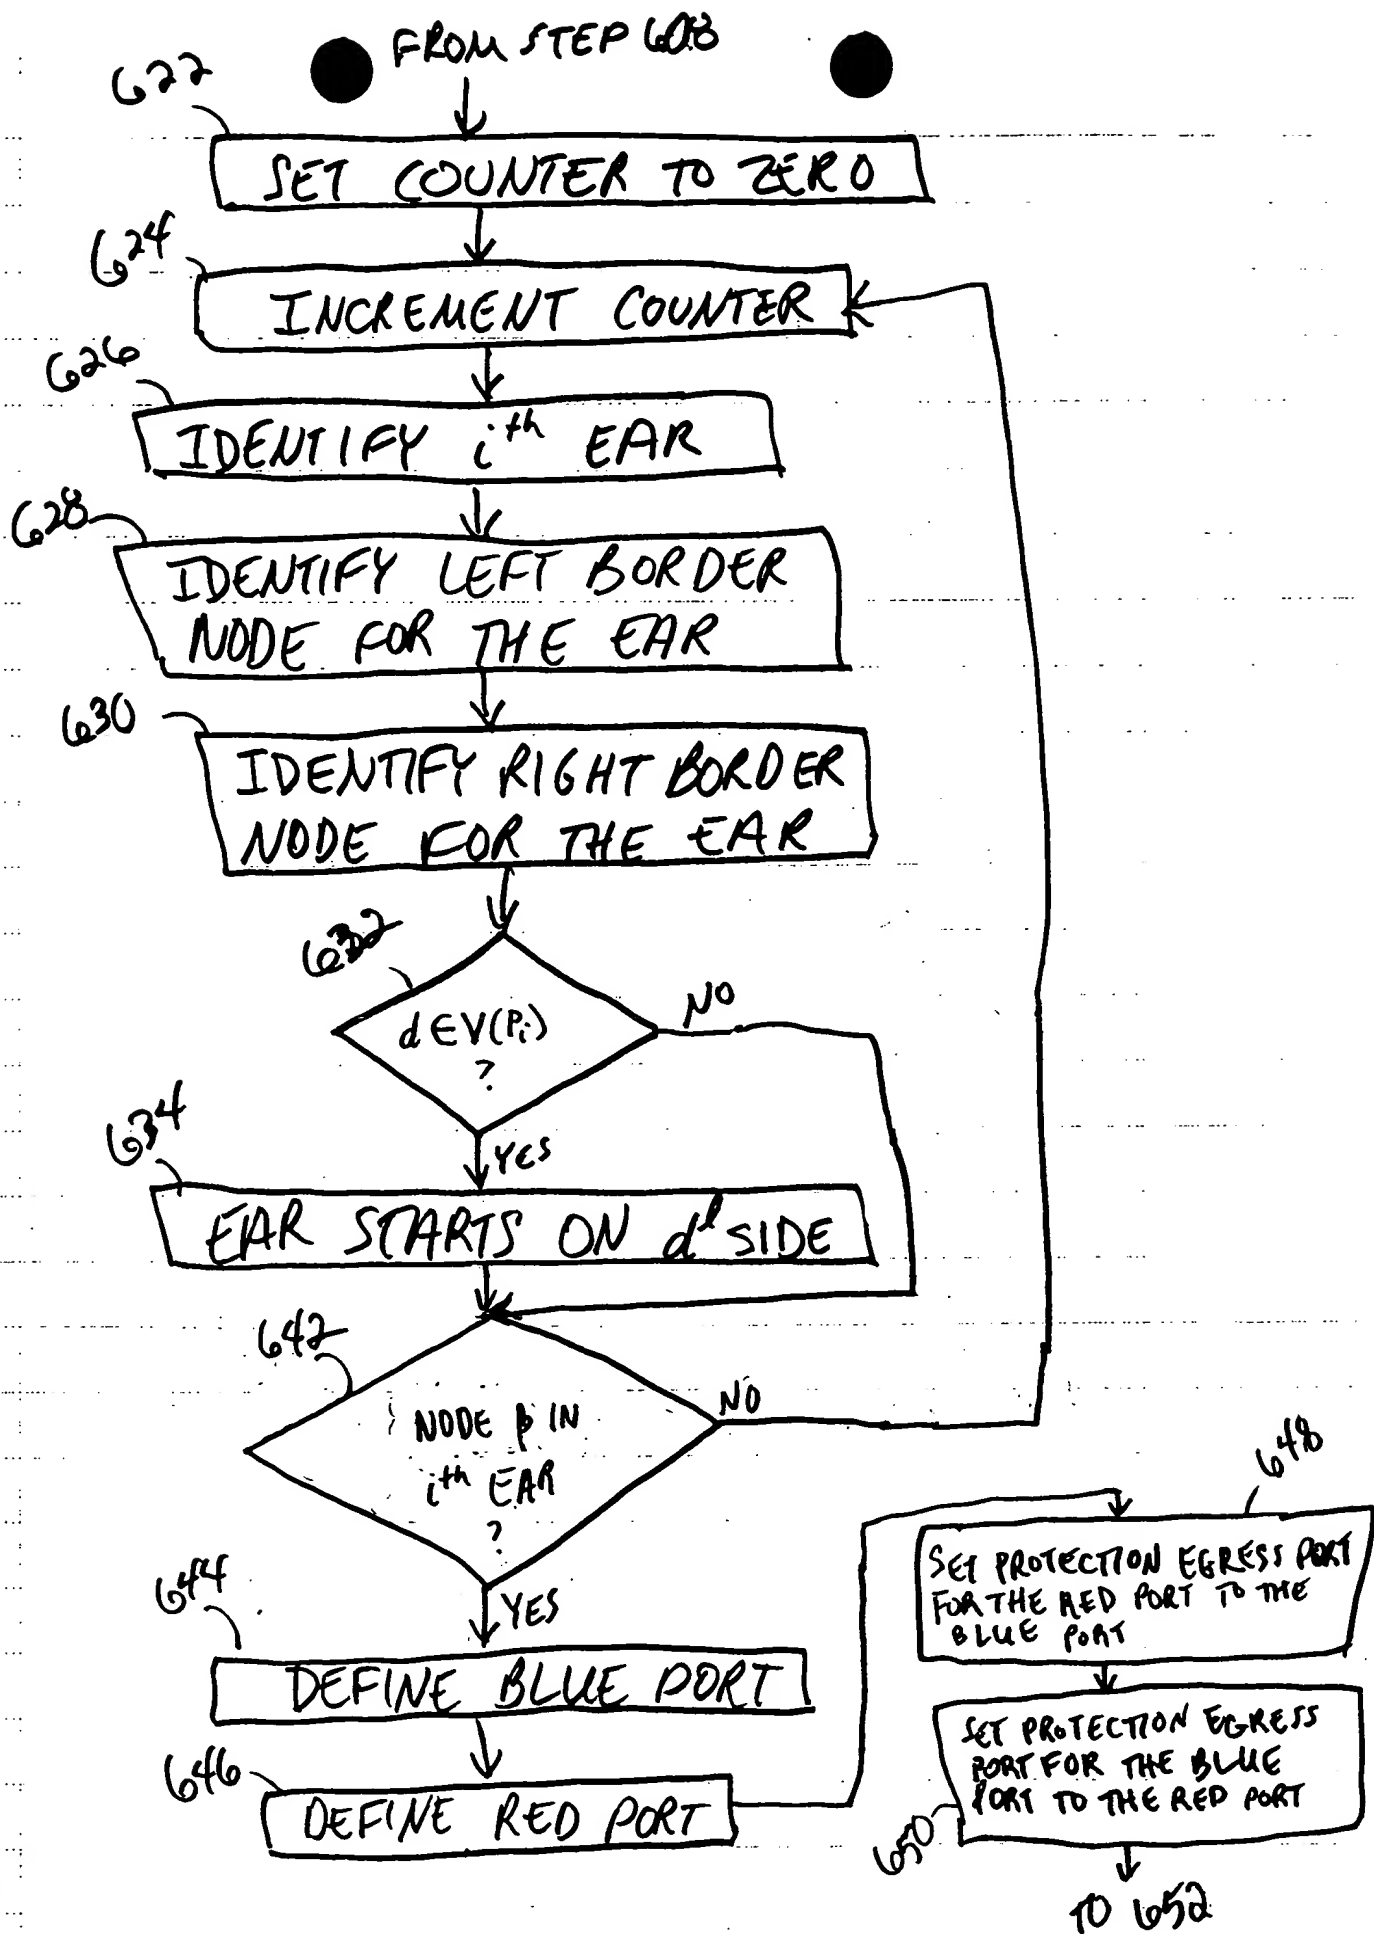 FROM STEP 608
622
SET COUNTER TO ZERO
624
INCREMENT COUNTER
626
IDENTIFY i^th EAR
628
IDENTIFY LEFT BORDER
NODE FOR THE EAR
630
IDENTIFY RIGHT BORDER
NODE FOR THE EAR
632
d∈V(Pi)
?
NO
YES
634
EAR STARTS ON d^l SIDE
642
NODE p IN
i^th EAR
?
NO
YES
644
DEFINE BLUE PORT
646
DEFINE RED PORT
648
SET PROTECTION EGRESS PORT
FOR THE RED PORT TO THE
BLUE PORT
SET PROTECTION EGRESS
PORT FOR THE BLUE
PORT TO THE RED PORT
650
TO 652